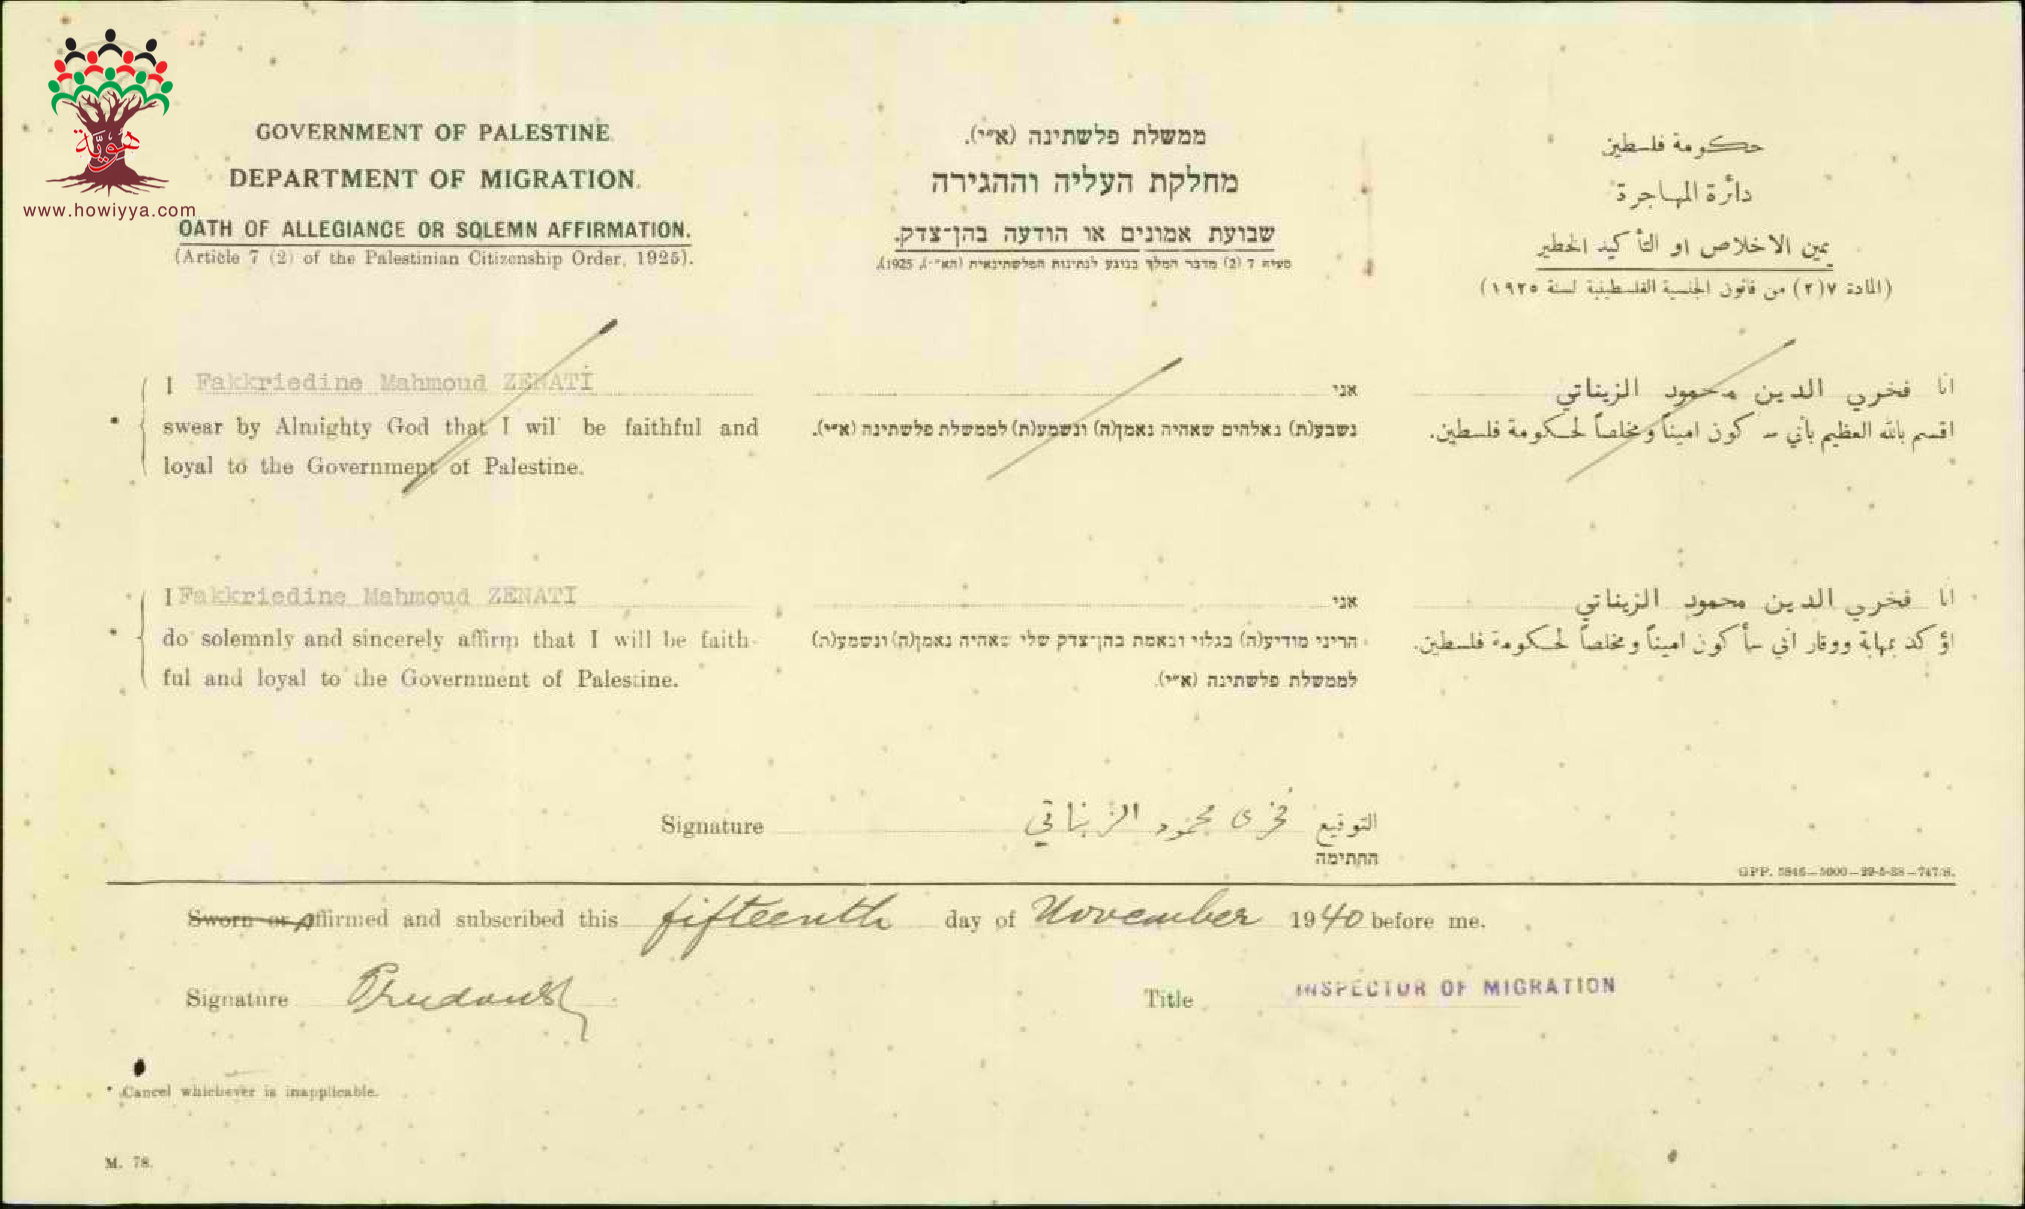 هويّة
www.howiyya.com
GOVERNMENT OF PALESTINE.
DEPARTMENT OF MIGRATION.
OATH OF ALLEGIANCE OR SOLEMN AFFIRMATION.
(Article 7 (2) of the Palestinian Citizenship Order, 1925).
ממשלת פלשתינה (א״י).
מחלקת העליה וההגירה
שבועת אמונים או הודעה בהן־צדק.
סעיף 7 (2) מדבר המלך בנוגע לנתינות הפלשתינאית (הא״י), 1925.
حكومة فلسطين
دائرة المهاجرة
يمين الاخلاص او التأكيد الخطير
(المادة ٧(٢) من قانون الجنسية الفلسطينية لسنة ١٩٢٥)
I Fakkriedine Mahmoud ZENATI
swear by Almighty God that I wil be faithful and
loyal to the Government of Palestine.
אני
נשבע(ת) באלהים שאהיה נאמן(ה) ונשמע(ת) לממשלת פלשתינה (א״י).
انا فخري الدين محمود الزيناتي
اقسم بالله العظيم بأني سـ كون اميناً ومخلصاً لحكومة فلسطين.
I Fakkriedine Mahmoud ZENATI
do solemnly and sincerely affirm that I will be faith-
ful and loyal to the Government of Palestine.
אני
הריני מודיע(ה) בגלוי ובאמת בהן־צדק שלי שאהיה נאמן(ה) ונשמע(ה)
לממשלת פלשתינה (א״י).
انا فخري الدين محمود الزيناتي
اؤكد بمهابة ووقار اني سأكون اميناً ومخلصاً لحكومة فلسطين.
Signature فخري محمود الزيناتي التوقيع
החתימה
GPP. 5846—5000—29-5-38—747/S.
Sworn or Affirmed and subscribed this fifteenth day of November 1940 before me.
Signature
Title INSPECTOR OF MIGRATION
* Cancel whichever is inapplicable.
M. 78.